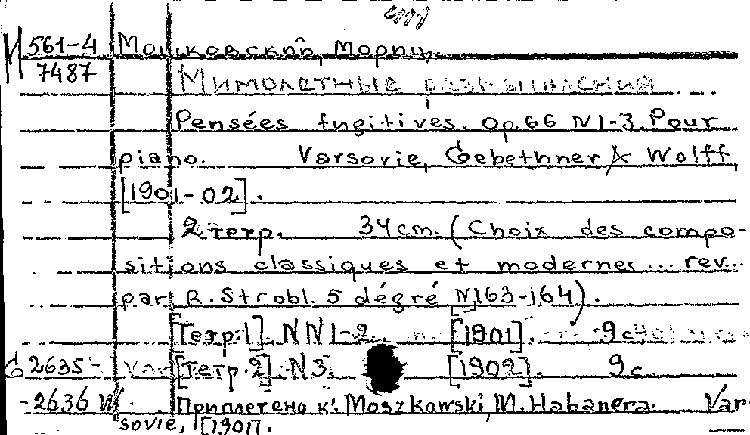 И 561-4 Мошковский, Мориц.
7487 Мимолетные размышления
Pensées fugitives. Op. 66 N 1-3. Pour
piano. Varsovie, Gebethner & Wolff,
[1901-02].
2 тетр. 34 cm. (Choix des compo-
sitions classiques et modernes ... rev.
par R. Strobl. 5 dégré N 163-164).
[Тетр. 1]. NN 1-2. [1901]. 9 c.
G 2635- [Тетр. 2]. N 3. [1902]. 9 c.
-2636 Приплетено к: Moszkowski, M. Habanera. Var-
sovie, [1901].